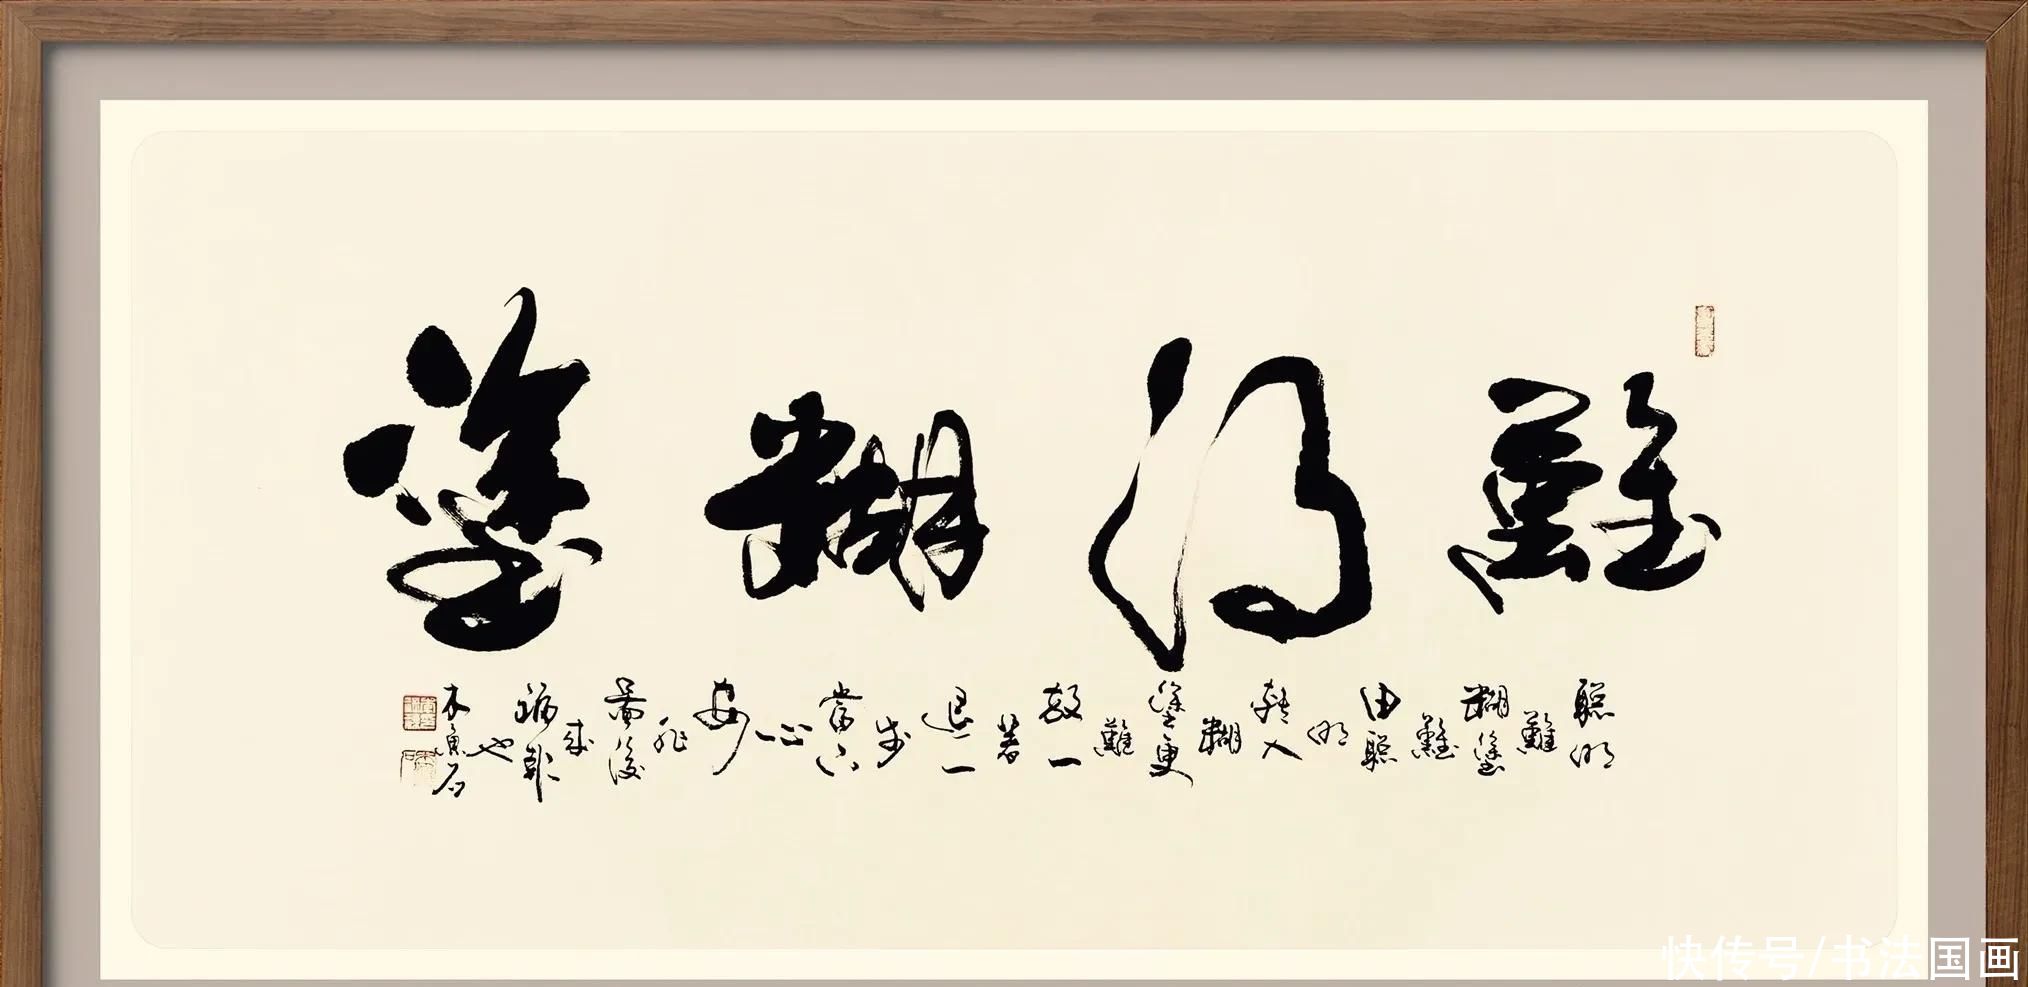 難得糊塗
聪明難糊塗難由聪明轉入糊塗更難放一著退一步當下心安非圖後來福報也
木魚石
快传号/书法国画